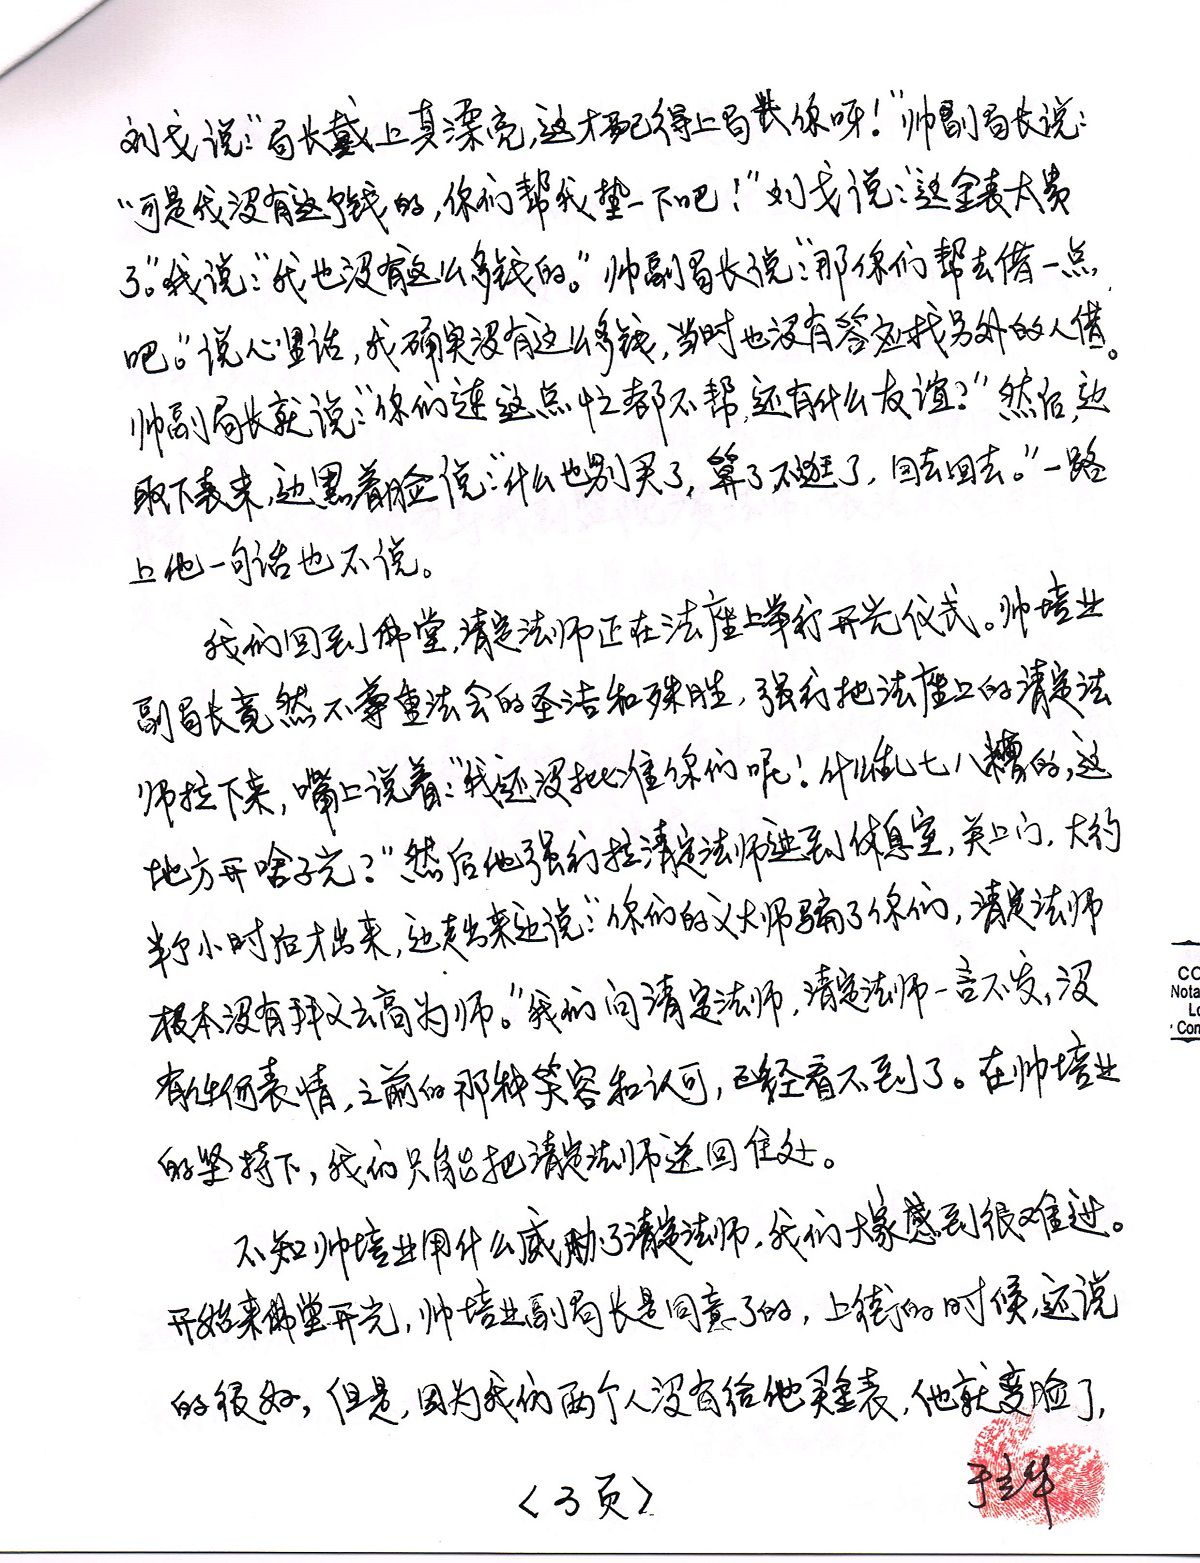 刘戈说：“局长戴上真漂亮，这才配得上局长你呀！”帅副局长说：
“可是我没有这个钱的，你们帮我垫一下吧！”刘戈说：“这金表太贵
了。”我说：“我也没有这么多钱的。”帅副局长说：“那你们帮去借一点
吧。”说心里话，我确实没有这么多钱，当时也没有答应找另外的人借。
帅副局长就说：“你们连这点忙都不帮，还有什么友谊？”然后，边
取下表来，边黑着脸说：“什么也别买了，算了，不逛了，回去回去。”一路
上他一句话也不说。
我们回到佛堂，清定法师正在法座上举行开光仪式。帅培业
副局长竟然不尊重法会的圣洁和殊胜，强行把法座上的清定法
师拉下来，嘴上说着：“我还没批准你们呢！什么乱七八糟的，这
地方开啥子光？”然后他强行拉清定法师进到休息室，关上门，大约
半个小时后才出来，边走出来边说：“你们的义大师骗了你们，清定法师
根本没有拜义云高为师。”我们问清定法师，清定法师一言不发，没
有任何表情，之前的那种笑容和认可，已经看不到了。在帅培业
的坚持下，我们只能把清定法师送回住处。
不知帅培业用什么威胁了清定法师，我们大家感到很难过。
开始来佛堂开光，帅培业副局长是同意了的，上街的时候，还说
的很好，但是，因为我们两个人没有给他买金表，他就变脸了，
〈3页〉
CO
Nota
Lo
Com